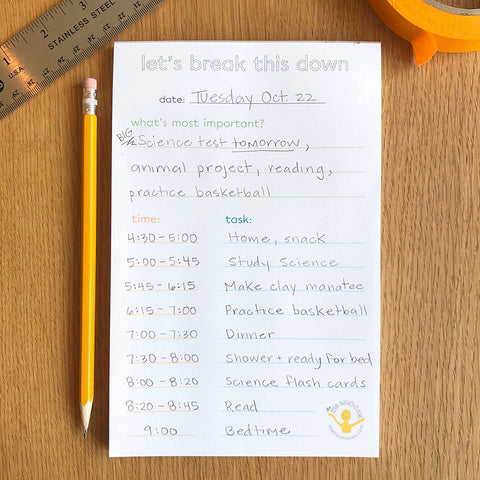 STAINLESS STEEL
U.S.A.
let's break this down
date: Tuesday Oct. 22
what's most important?
BIG Science test tomorrow,
animal project, reading,
practice basketball
time: task:
4:30-5:00 Home, snack
5:00-5:45 Study Science
5:45-6:15 Make clay manatee
6:15-7:00 Practice basketball
7:00-7:30 Dinner
7:30-8:00 Shower + ready for bed
8:00-8:20 Science flash cards
8:20-8:45 Read
9:00 Bedtime